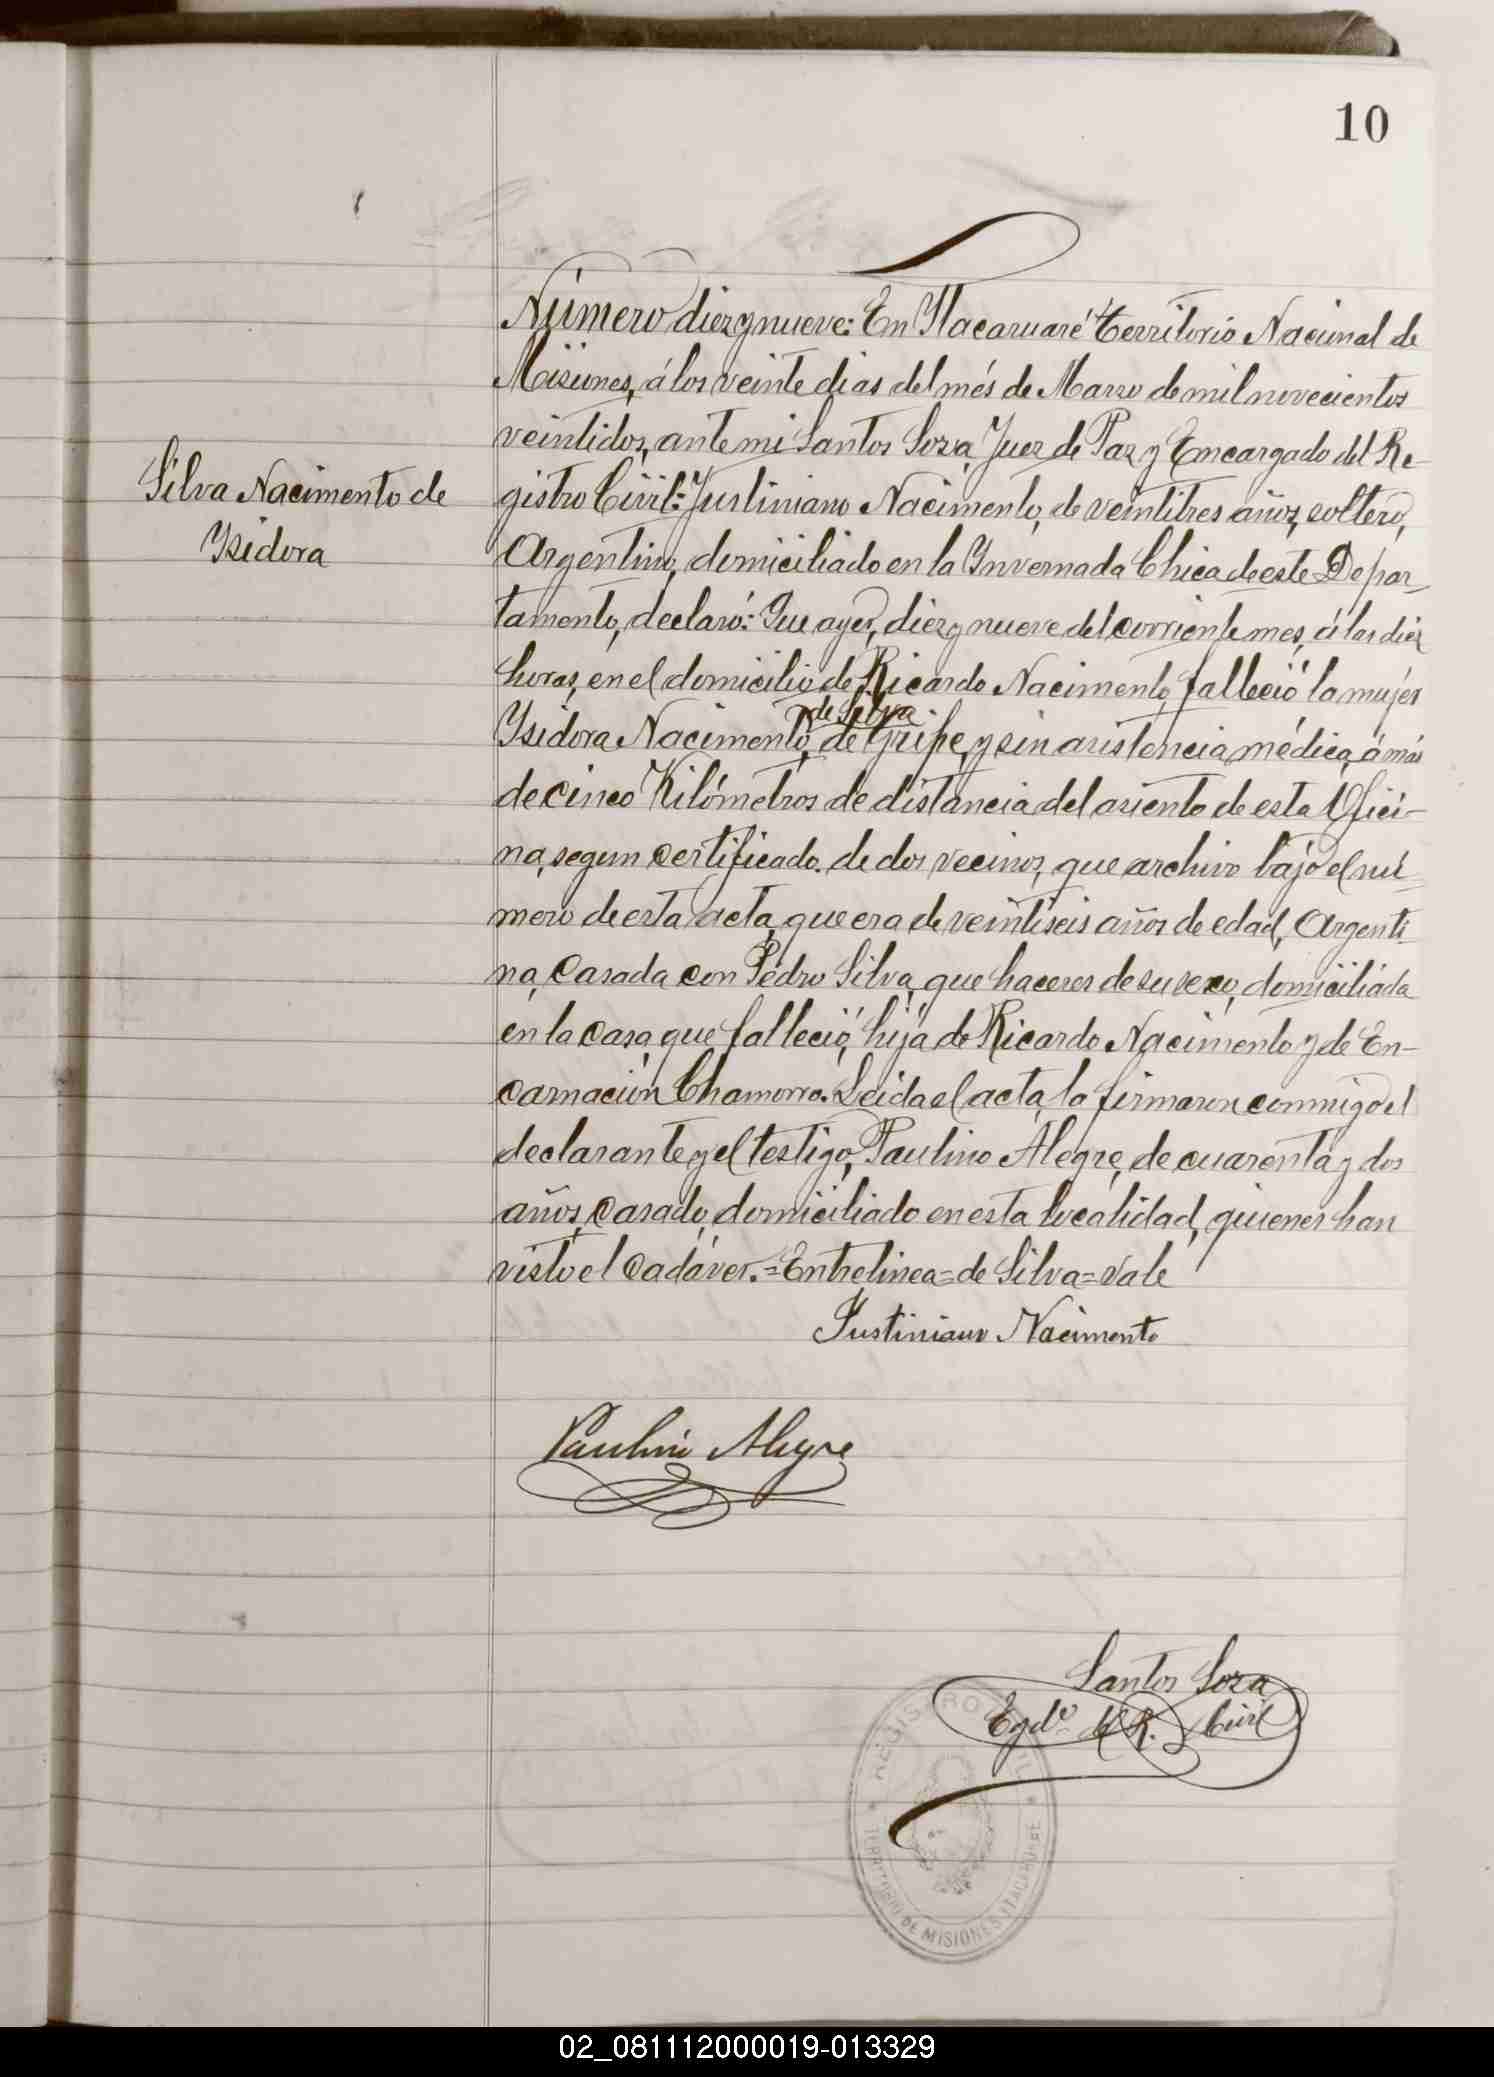 10
Número diez y nueve: En Itacaruaré Territorio Nacional de
Misiones, á los veinte dias del més de Marzo de mil novecientos
veintidos, ante mi Santos Soza, Juez de Paz y Encargado del Re-
Silva Nacimento de
Ysidora
gistro Civil: Justiniano Nacimento, de veintitres años, soltero,
Argentino, domiciliado en la Invernada Chica de este Depar-
tamento, declaró: Que ayer, diez y nueve del corriente mes, á las diez
horas, en el domicilio de Ricardo Nacimento, falleció la mujer
de Silva
Ysidora Nacimento, de Gripe, y sin asistencia médica, á más
de cinco Kilómetros de distancia del asiento de esta Ofici-
na, segun certificado de dos vecinos, que archivo bajo el nú-
mero de esta acta, que era de veintiseis años de edad, Argenti-
na, Casada con Pedro Silva, que haceres de su sexo, domiciliada
en la Casa que falleció, hija de Ricardo Nacimento y de En-
carnación Chamorro. Leida el acta, la firmaron conmigo el
declarante y el testigo, Paulino Alegre, de cuarenta y dos
años, Casado, domiciliado en esta localidad, quienes han
visto el Cadáver.=Entrelinea=de Silva=Vale
Justiniano Nacimento
Paulino Alegre
Santos Soza
Egdo. del R. Civil
REGISTRO CIVIL
TERRITORIO DE MISIONES ITACARUARE
02_081112000019-013329